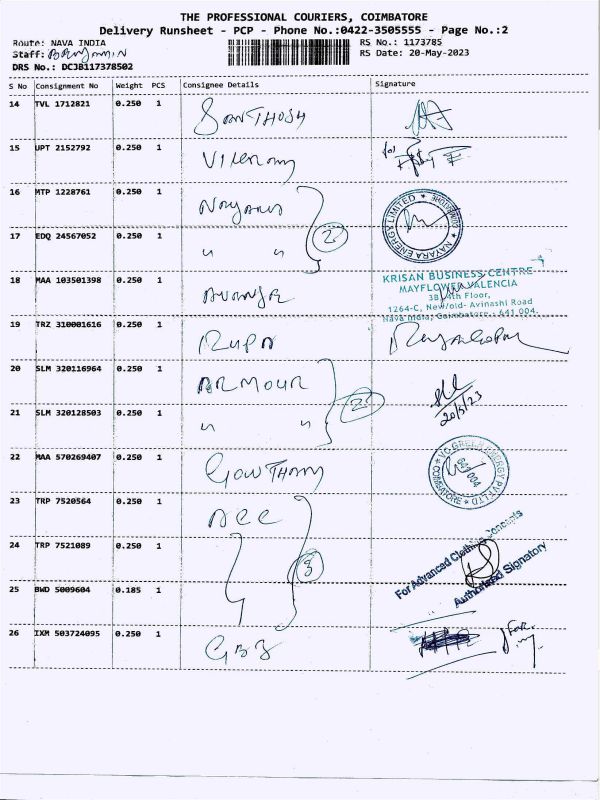 THE PROFESSIONAL COURIERS, COIMBATORE
Delivery Runsheet - PCP - Phone No.:0422-3505555 - Page No.:2
Route: NAVA INDIA
RS No.: 1173785
Staff: BENJAMIN
RS Date: 20-May-2023
DRS No.: DCJB117378502
S No Consignment No Weight PCS Consignee Details Signature
14 TVL 1712821 0.250 1 SANTHOSH
15 UPT 2152792 0.250 1 for
16 MTP 1228761 0.250 1 NAYARA
NAYARA ENERGY LIMITED * COIMBATORE *
17 EDQ 24567052 0.250 1 " " 2
18 MAA 103501398 0.250 1
KRISAN BUSINESS CENTRE
MAYFLOWER VALENCIA
3B, 4th Floor,
1264-C, New/old- Avinashi Road
Nava India, Coimbatore - 641 004.
19 TRZ 310001616 0.250 1 RUPA
20 SLM 320116964 0.250 1 ARMOUR
21 SLM 320128503 0.250 1 " " 2 20/5/23
22 MAA 570269407 0.250 1 GOWTHAM
VC GREEN ENERGY PVT LTD * COIMBATORE * 641 004
23 TRP 7520564 0.250 1 ACC
24 TRP 7521089 0.250 1 3
For Advanced Clothing Concepts
Authorised Signatory
25 BWD 5009604 0.185 1
26 IXM 503724095 0.250 1 For